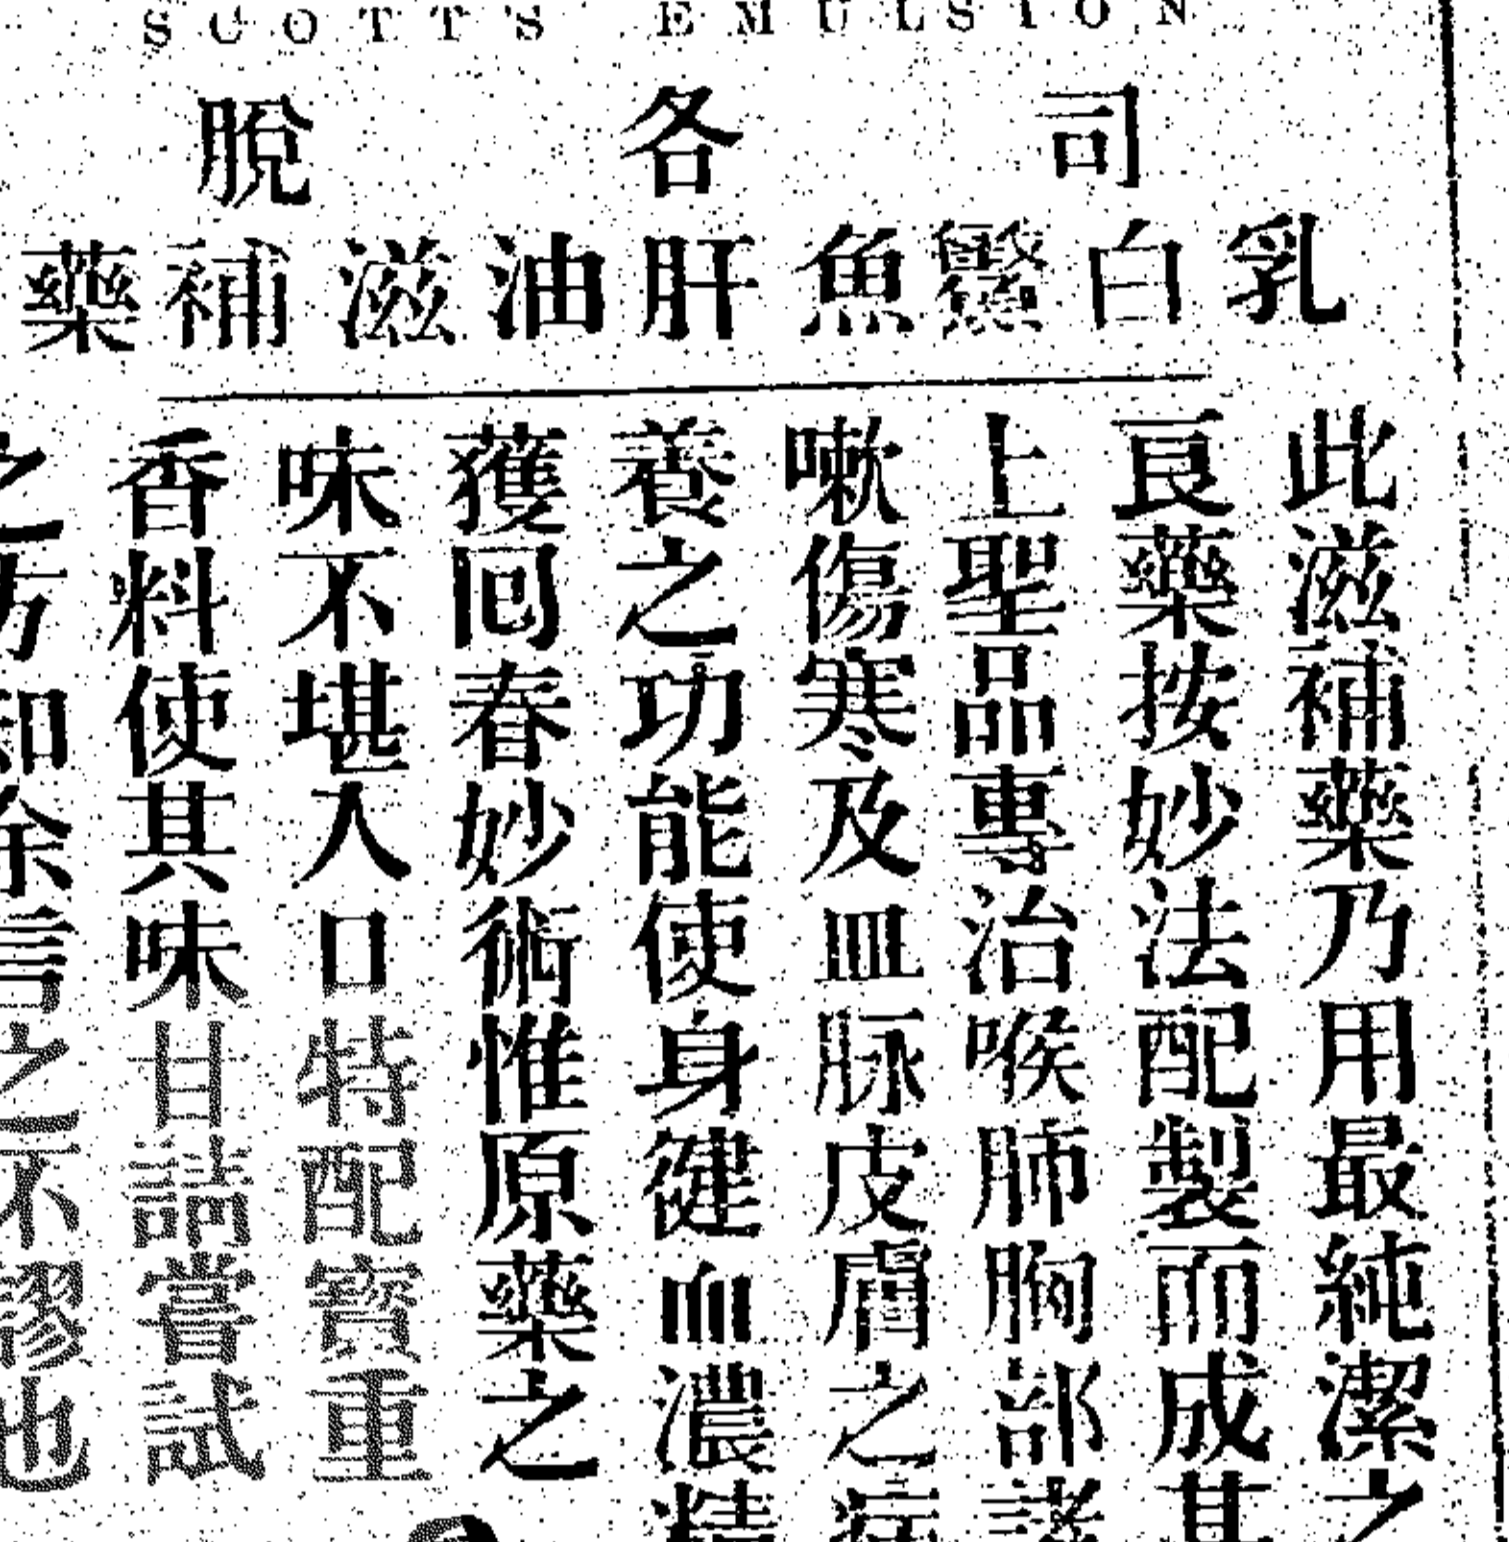 SCOTT'S EMULSION
司各脫
乳白鰵魚肝油滋補藥
此滋補藥乃用最純潔之
良藥按妙法配製而成其
上聖品專治喉肺胸部諸
嗽傷寒及血脉皮膚之症
養之功能使身健血濃精
獲囘春妙術惟原藥之
味不堪入口特配寳重
香料使其味甘請嘗試
之方知余言之不謬也